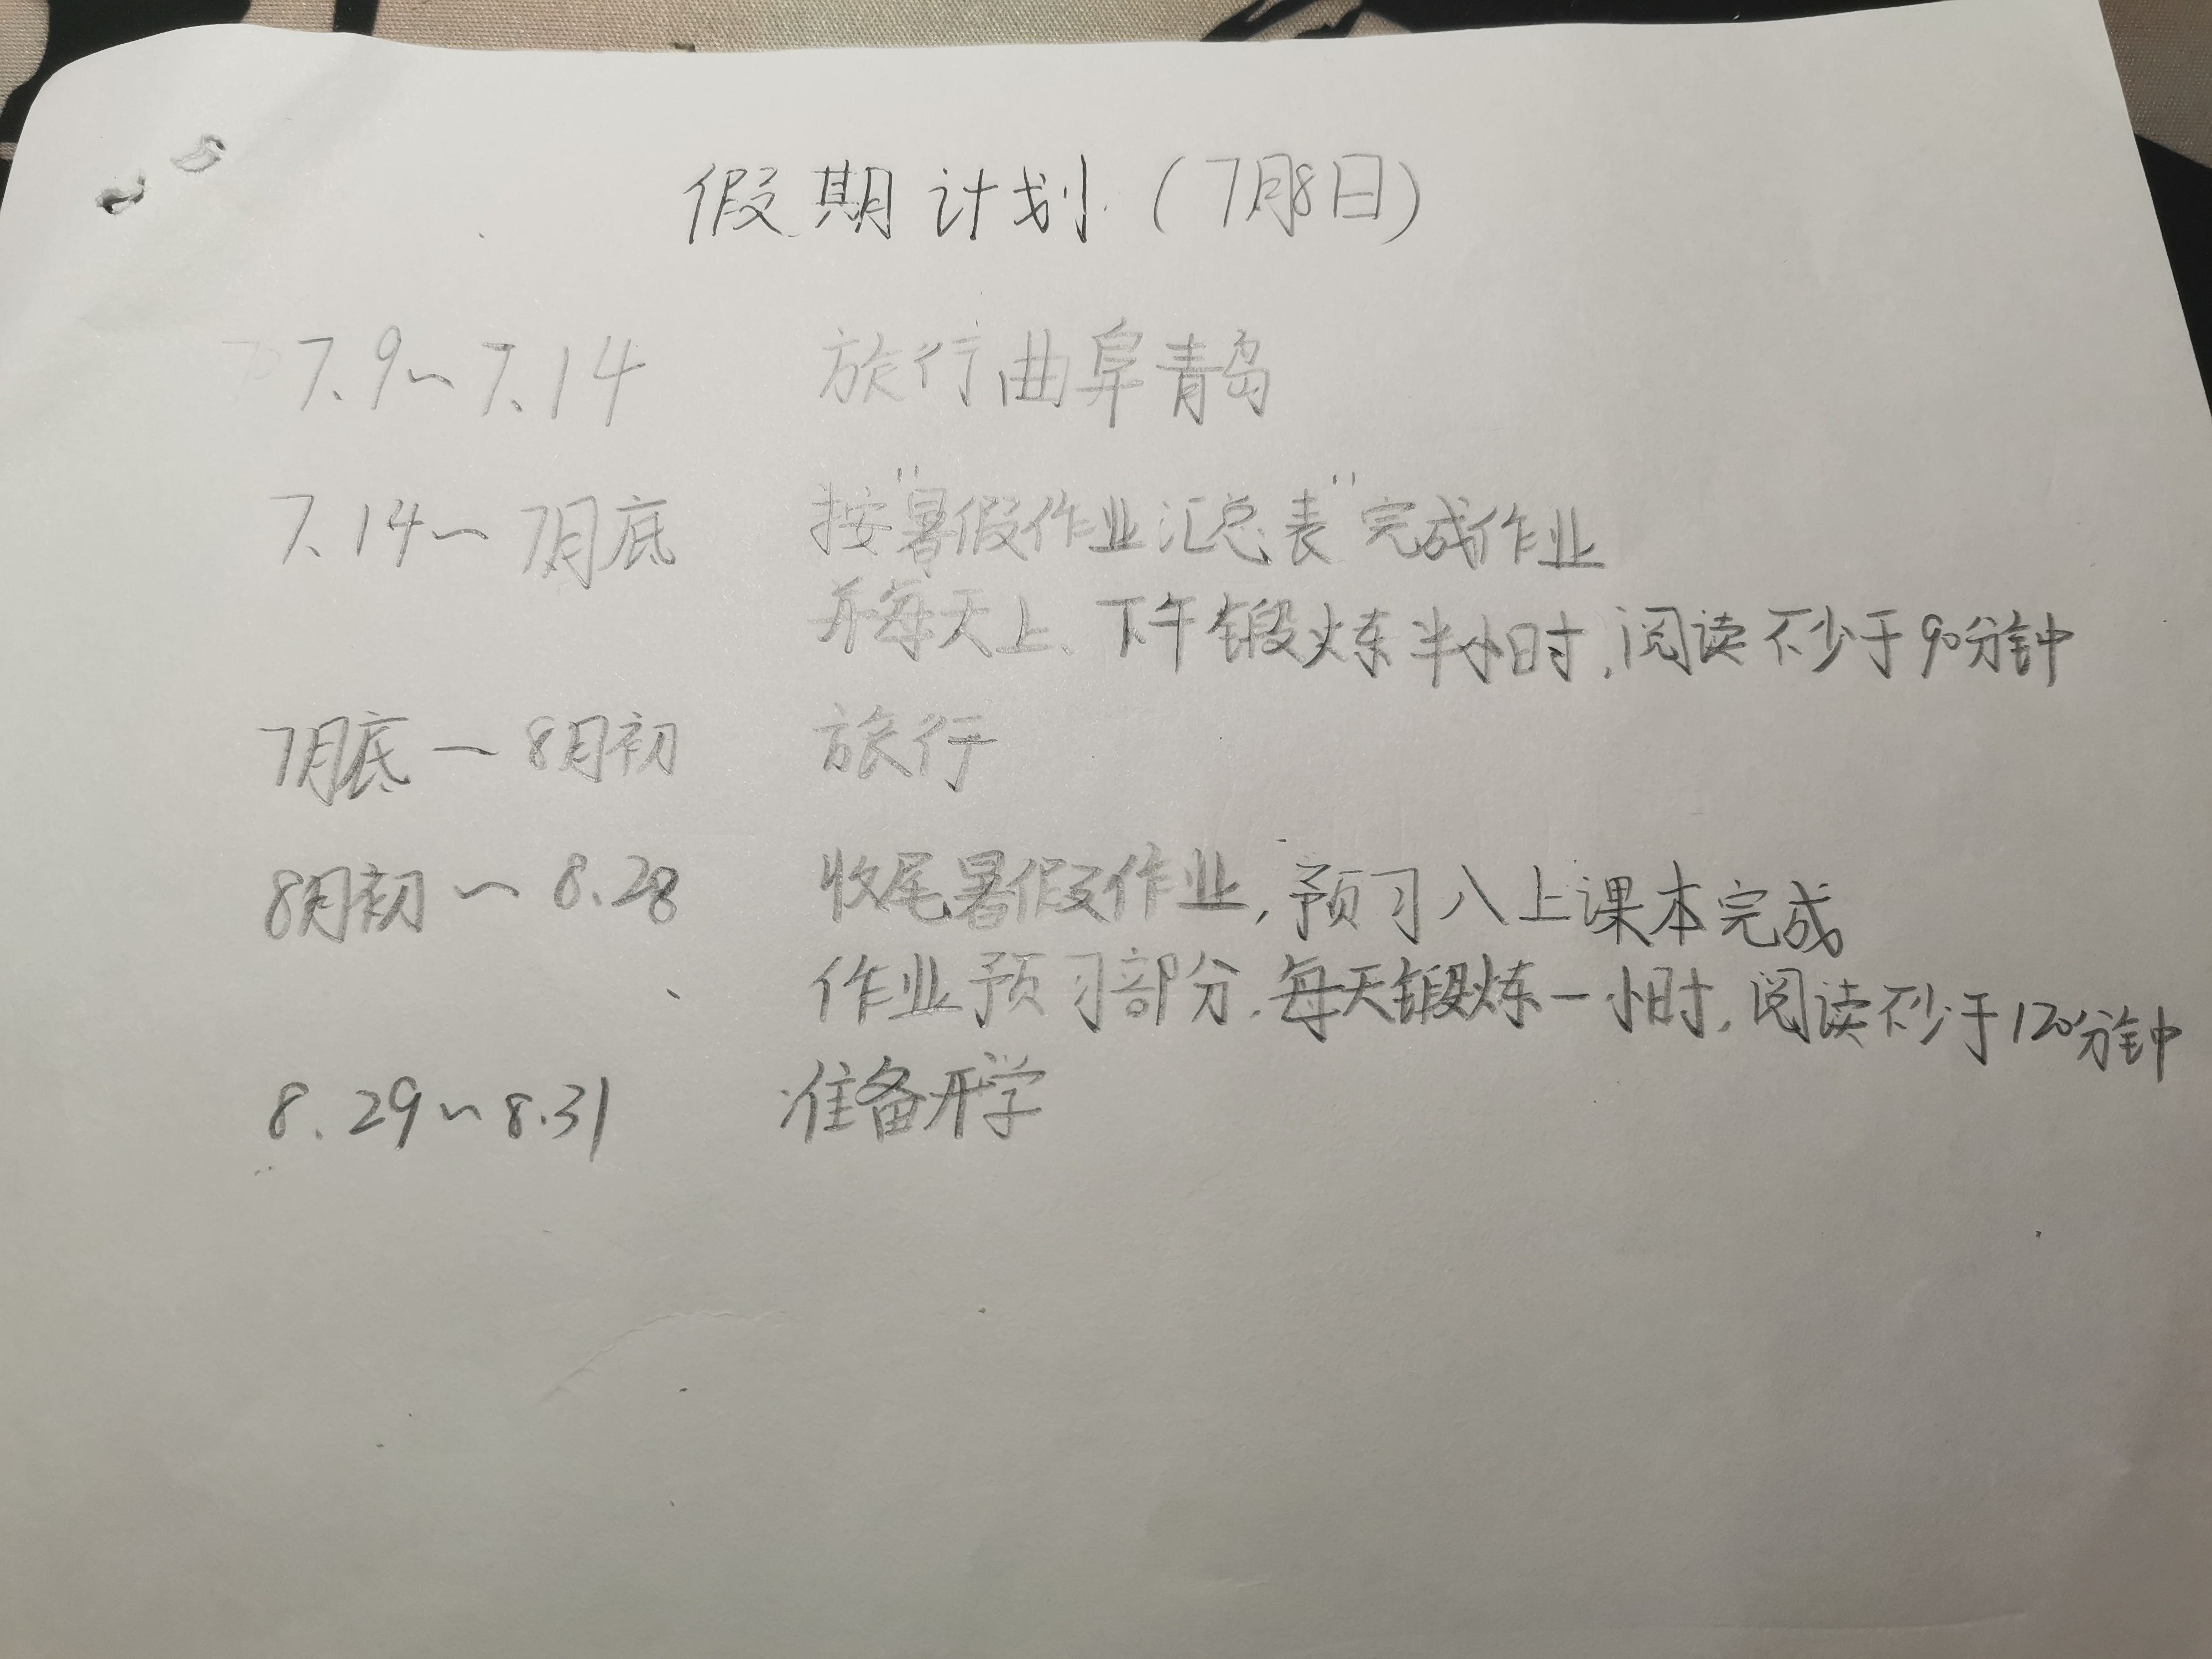 假期计划（7月8日）
7.9~7.14 旅行曲阜青岛
7.14~7月底 按"暑假作业汇总表"完成作业
并每天上、下午锻炼半小时,阅读不少于90分钟
7月底~8月初 旅行
8月初~8.28 收尾暑假作业,预习八上课本完成
作业预习部分.每天锻炼一小时,阅读不少于120分钟
8.29~8.31 准备开学